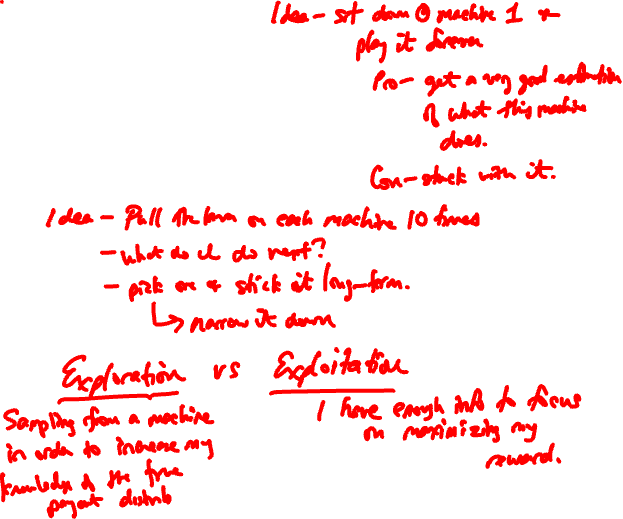 Idea - sit down @ machine 1 &
play it forever
Pro - get a very good estimation
of what this machine
does.
Con - stuck with it.
Idea - Pull the lever on each machine 10 times
- what do I do next?
- pick one & stick it long-term.
↳ narrow it down
Exploration vs Exploitation
Sampling from a machine
in order to increase my
knowledge of the true
payout distrib
I have enough info to focus
on maximizing my
reward.